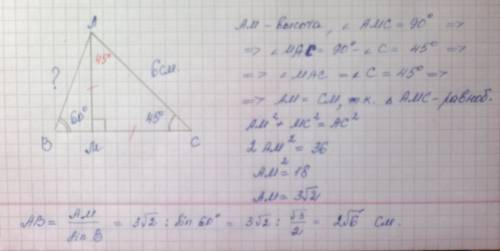 A
45°
?
6см.
60°
45°
B
M
C
AM - высота, ∠AMC = 90° =>
=> ∠MAC = 90° - ∠C = 45° =>
=> ∠MAC = ∠C = 45° =>
=> AM = CM, т.к. △AMC - равноб.
AM² + MC² = AC²
2AM² = 36
AM² = 18
AM = 3√2
AB = AM / sin B = 3√2 : sin 60° = 3√2 : √3/2 = 2√6 см.